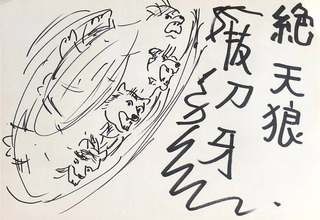 絶天狼
抜刀牙